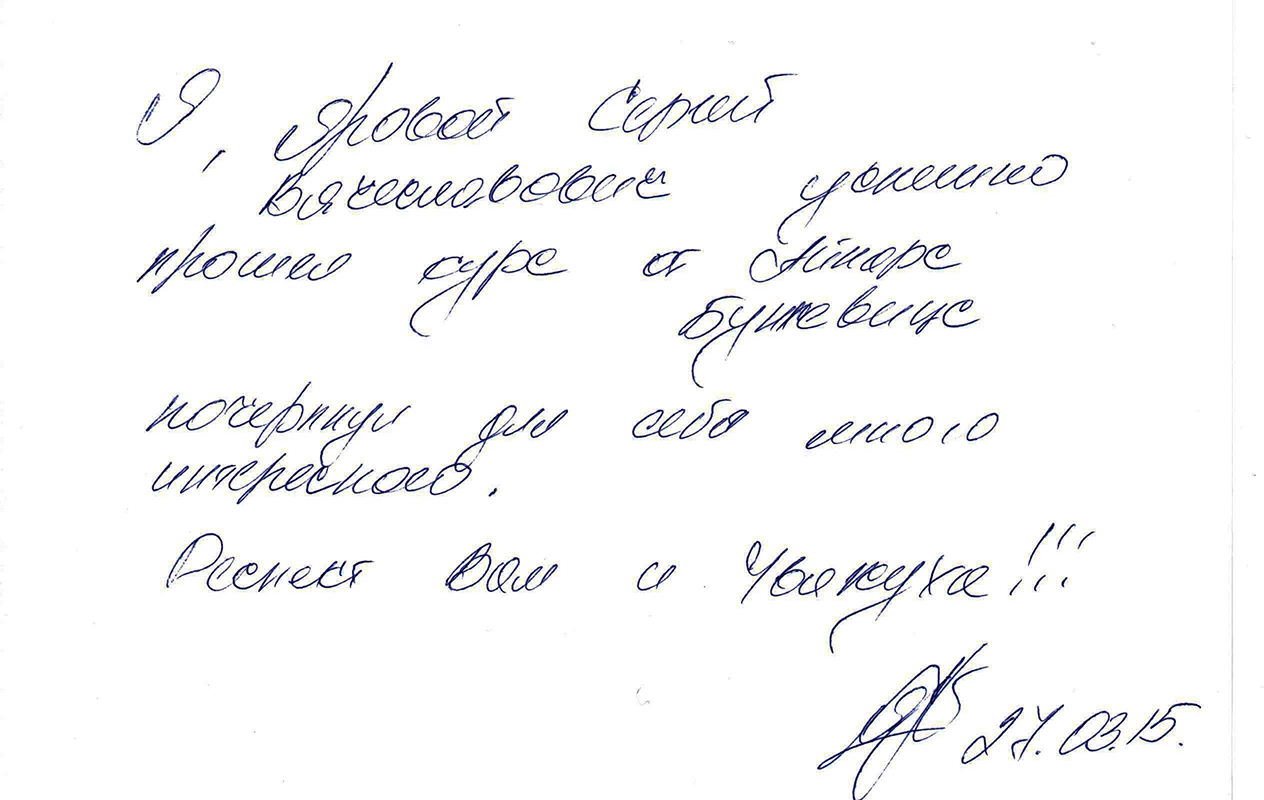 Я, Яровой Сергей
Вячеславович успешно
прошел курс от Айнарс
Бункевицс
почерпнул для себя много
интересного.
Респект Вам и Уважуха!!!
27.03.15.